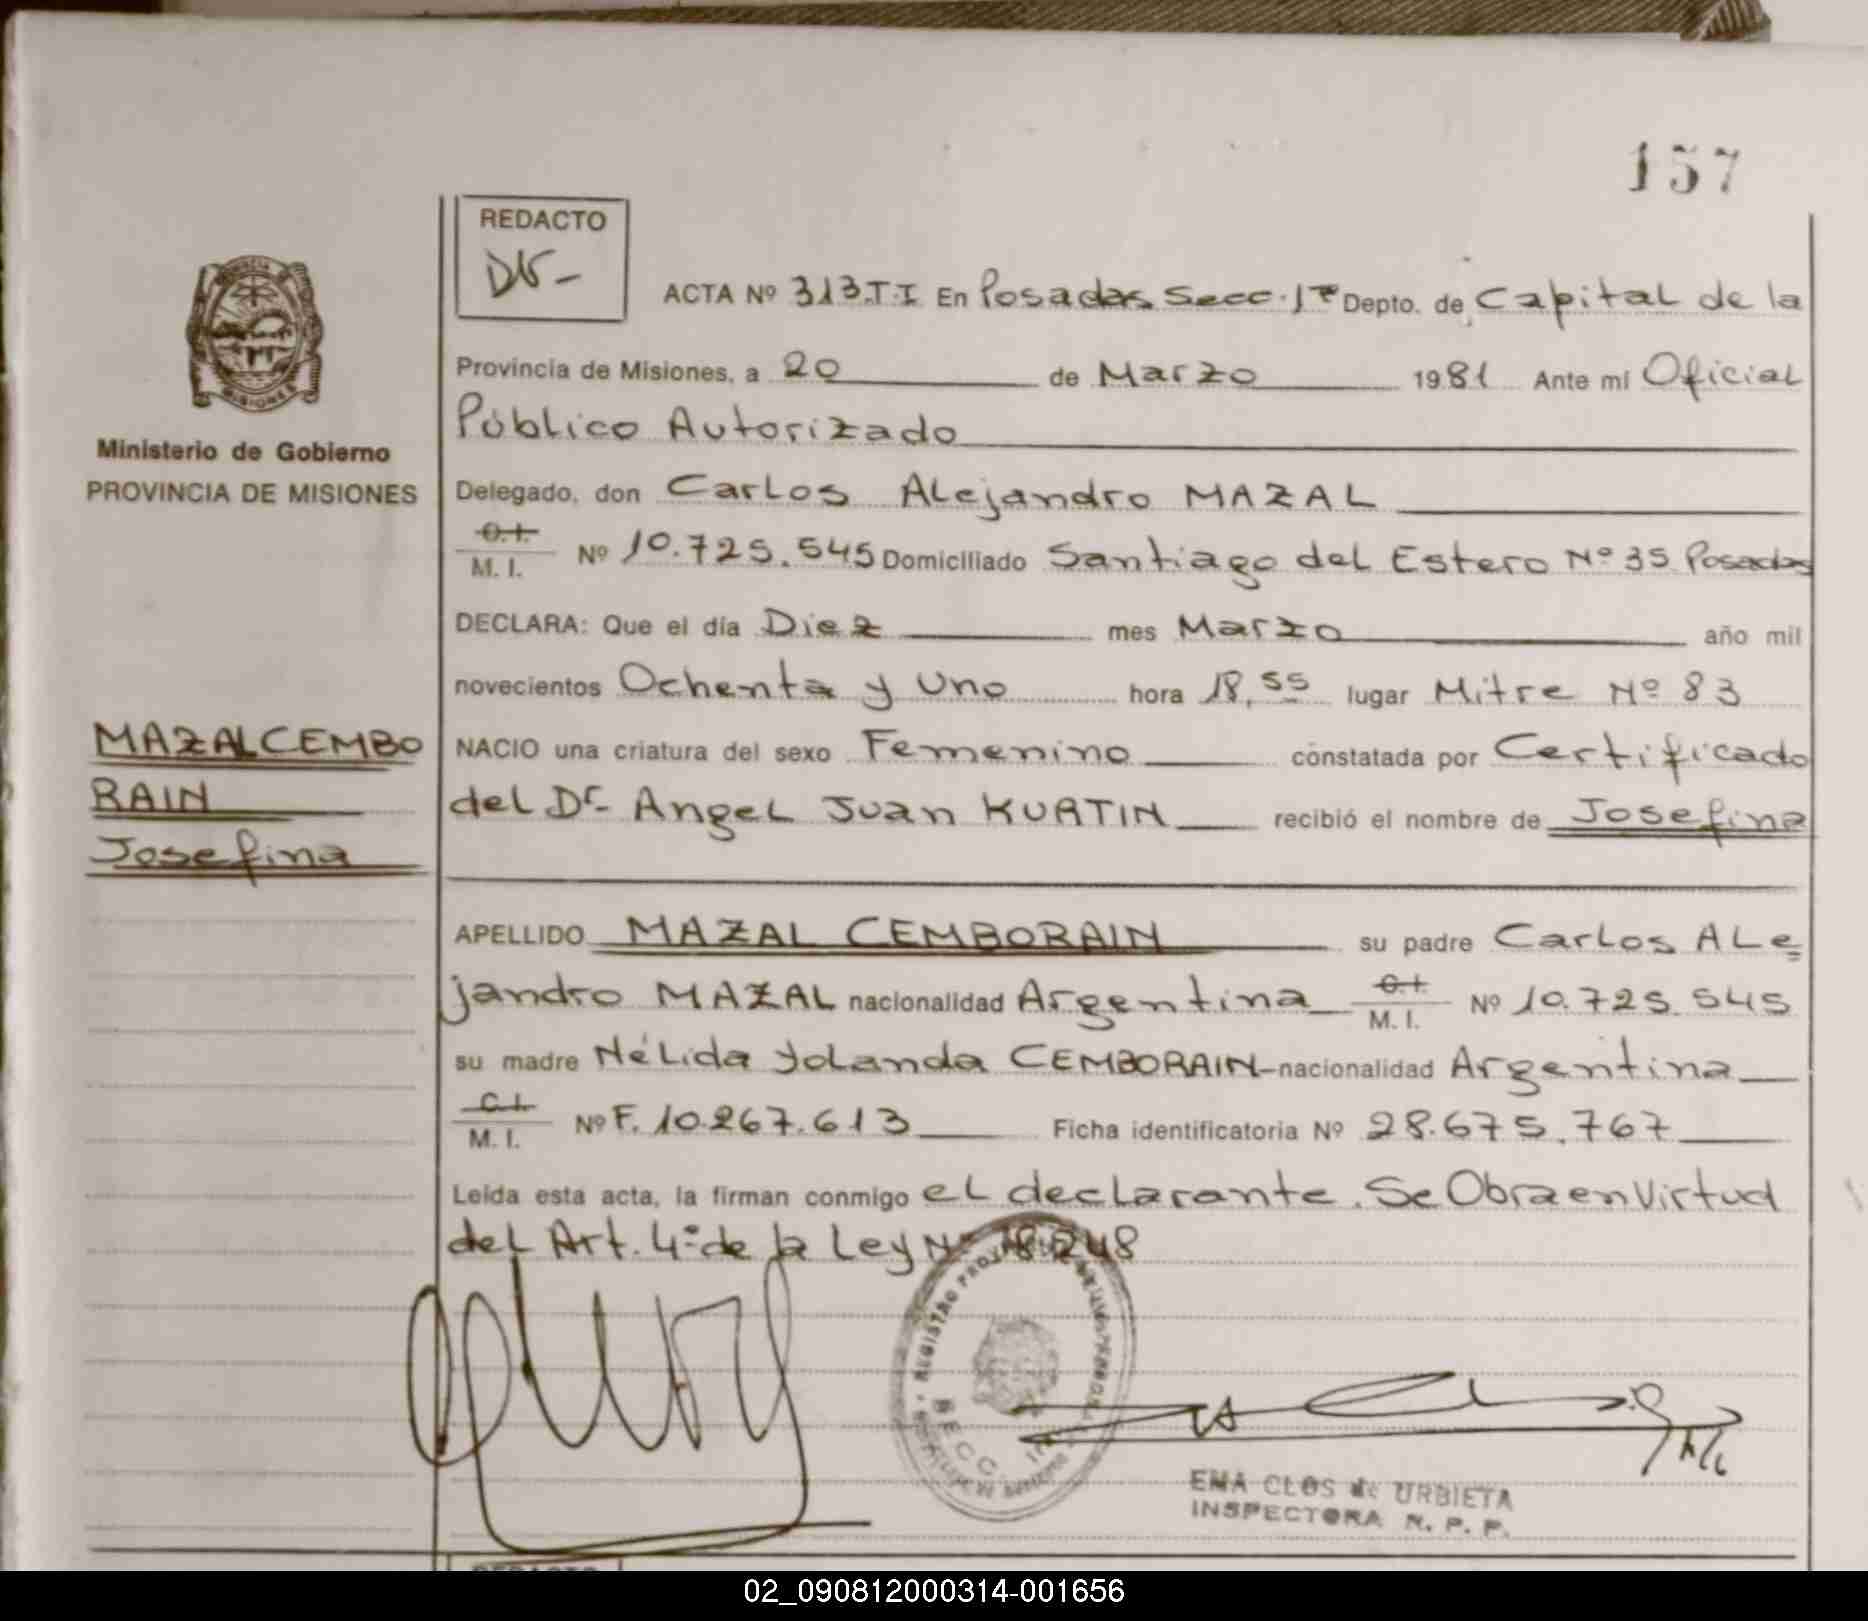 157
REDACTO
DV-
ACTA Nº 313.T.I En Posadas Secc. 1ª Depto. de Capital de la
Provincia de Misiones, a 20 de Marzo 1981 Ante mí Oficial
Público Autorizado
Ministerio de Gobierno
PROVINCIA DE MISIONES
Delegado, don Carlos Alejandro MAZAL
C.I. M.I. Nº 10.725.545 Domiciliado Santiago del Estero Nº 35 Posadas
DECLARA: Que el día Diez mes Marzo año mil
novecientos Ochenta y Uno hora 18,55 lugar Mitre Nº 83
MAZAL CEMBO
RAIN
Josefina
NACIO una criatura del sexo Femenino constatada por Certificado
del Dr. Angel Juan KURTIN recibió el nombre de Josefina
APELLIDO MAZAL CEMBORAIN su padre Carlos ALe
jandro MAZAL nacionalidad Argentina C.I. M.I. Nº 10.725.545
su madre Nélida Yolanda CEMBORAIN nacionalidad Argentina
C.I. M.I. Nº F. 10.267.613 Ficha identificatoria Nº 28.675.767
Leída esta acta, la firman conmigo el declarante. Se Obra en Virtud
del Art. 4º de la Ley Nº 18.248
REGISTRO
SECC.
EMA CLOS de URBIETA
INSPECTORA R. P. P.
REDACTO
02_090812000314-001656